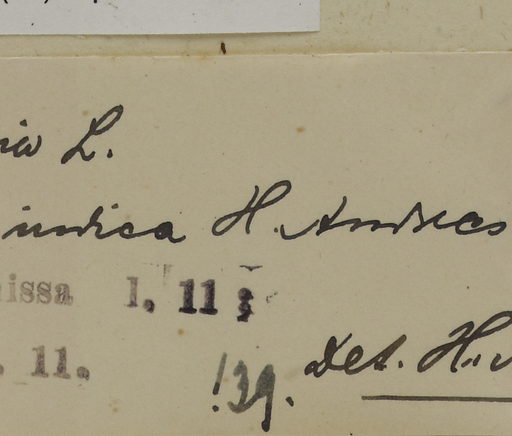 ia L.
indica H. Andres
issa 1. 11 ;
. 11.
!39. Det. H.